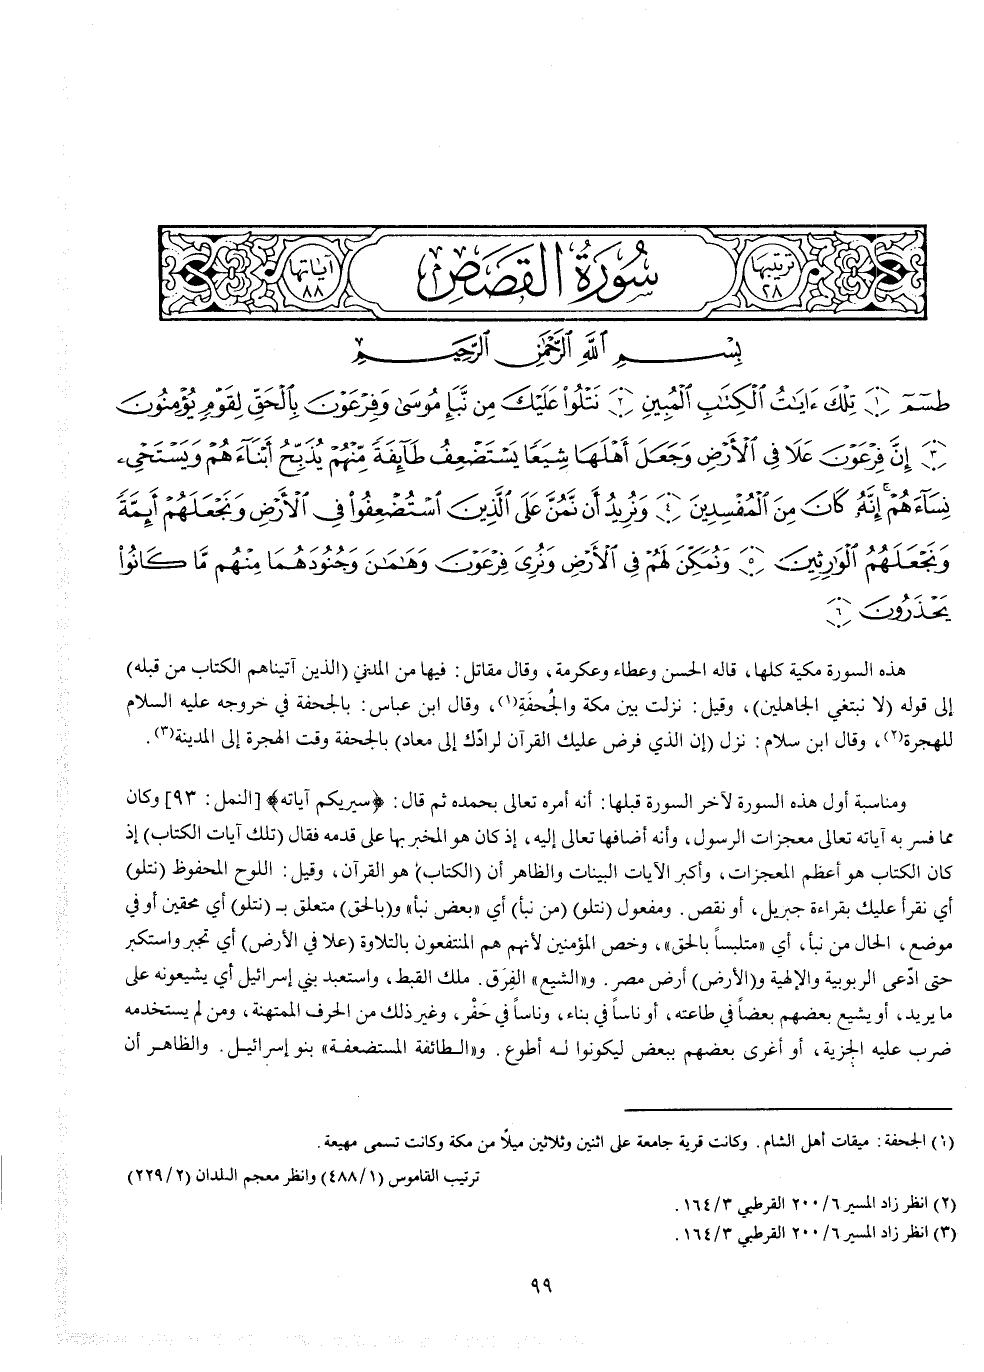 ترتيبها
٢٨
سُورَةُ القَصَصِ
آياتها
٨٨
بِسْمِ ٱللَّهِ ٱلرَّحْمَٰنِ ٱلرَّحِيمِ
طسٓمٓ ﴿١﴾ تِلْكَ ءَايَٰتُ ٱلْكِتَٰبِ ٱلْمُبِينِ ﴿٢﴾ نَتْلُوا۟ عَلَيْكَ مِن نَّبَإِ مُوسَىٰ وَفِرْعَوْنَ بِٱلْحَقِّ لِقَوْمٍ يُؤْمِنُونَ
﴿٣﴾ إِنَّ فِرْعَوْنَ عَلَا فِى ٱلْأَرْضِ وَجَعَلَ أَهْلَهَا شِيَعًا يَسْتَضْعِفُ طَآئِفَةً مِّنْهُمْ يُذَبِّحُ أَبْنَآءَهُمْ وَيَسْتَحْىِۦ
نِسَآءَهُمْ ۚ إِنَّهُۥ كَانَ مِنَ ٱلْمُفْسِدِينَ ﴿٤﴾ وَنُرِيدُ أَن نَّمُنَّ عَلَى ٱلَّذِينَ ٱسْتُضْعِفُوا۟ فِى ٱلْأَرْضِ وَنَجْعَلَهُمْ أَئِمَّةً
وَنَجْعَلَهُمُ ٱلْوَٰرِثِينَ ﴿٥﴾ وَنُمَكِّنَ لَهُمْ فِى ٱلْأَرْضِ وَنُرِىَ فِرْعَوْنَ وَهَٰمَٰنَ وَجُنُودَهُمَا مِنْهُم مَّا كَانُوا۟
يَحْذَرُونَ ﴿٦﴾
هذه السورة مكية كلها، قاله الحسن وعطاء وعكرمة، وقال مقاتل: فيها من المدني (الذين آتيناهم الكتاب من قبله)
إلى قوله (لا نبتغي الجاهلين)، وقيل: نزلت بين مكة والجُحفَةِ(١)، وقال ابن عباس: بالجحفة في خروجه عليه السلام
للهجرة(٢)، وقال ابن سلام: نزل (إن الذي فرض عليك القرآن لرادّك إلى معاد) بالجحفة وقت الهجرة إلى المدينة(٣).
ومناسبة أول هذه السورة لآخر السورة قبلها: أنه أمره تعالى بحمده ثم قال: ﴿سيريكم آياته﴾ [النمل: ٩٣] وكان
مما فسر به آياته تعالى معجزات الرسول، وأنه أضافها تعالى إليه، إذ كان هو المخبر بها على قدمه فقال (تلك آيات الكتاب) إذ
كان الكتاب هو أعظم المعجزات، وأكبر الآيات البينات والظاهر أن (الكتاب) هو القرآن، وقيل: اللوح المحفوظ (نتلو)
أي نقرأ عليك بقراءة جبريل، أو نقص. ومفعول (نتلو) (من نبأ) أي «بعض نبأ» و(بالحق) متعلق بـ (نتلو) أي محقين أو في
موضع، الحال من نبأ، أي «متلبساً بالحق»، وخص المؤمنين لأنهم هم المنتفعون بالتلاوة (علا في الأرض) أي تجبر واستكبر
حتى ادّعى الربوبية والإلهية و(الأرض) أرض مصر. و«الشيع» الفِرَق. ملك القبط، واستعبد بني إسرائيل أي يشيعونه على
ما يريد، أو يشيع بعضهم بعضاً في طاعته، أو ناساً في بناء، وناساً في حَفْر، وغير ذلك من الحرف الممتهنة، ومن لم يستخدمه
ضرب عليه الجزية، أو أغرى بعضهم ببعض ليكونوا له أطوع. و«الطائفة المستضعفة» بنو إسرائيل. والظاهر أن
(١) الجحفة: ميقات أهل الشام. وكانت قرية جامعة على اثنين وثلاثين ميلاً من مكة وكانت تسمى مهيعة.
ترتيب القاموس (٤٨٨/١) وانظر معجم البلدان (٢٢٩/٢)
(٢) انظر زاد المسير ٢٠٠/٦ القرطبي ١٦٤/٣.
(٣) انظر زاد المسير ٢٠٠/٦ القرطبي ١٦٤/٣.
٩٩